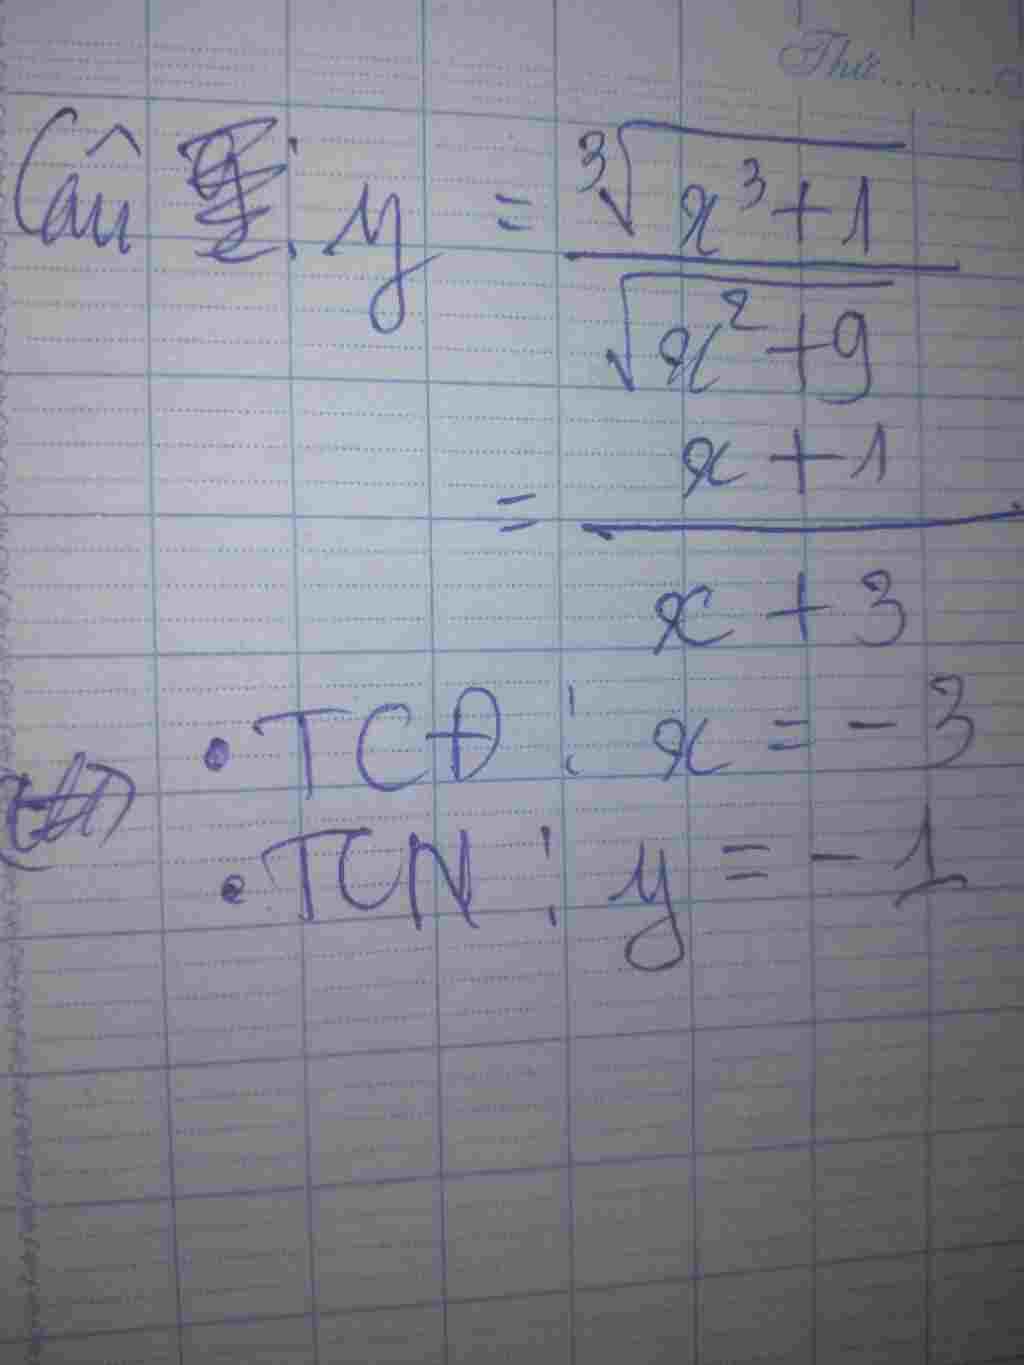 Thứ
Câu : y = ∛(x³+1) / √(x²+9)
= (x+1) / (x+3)
• TCĐ : x = -3
• TCN : y = -1